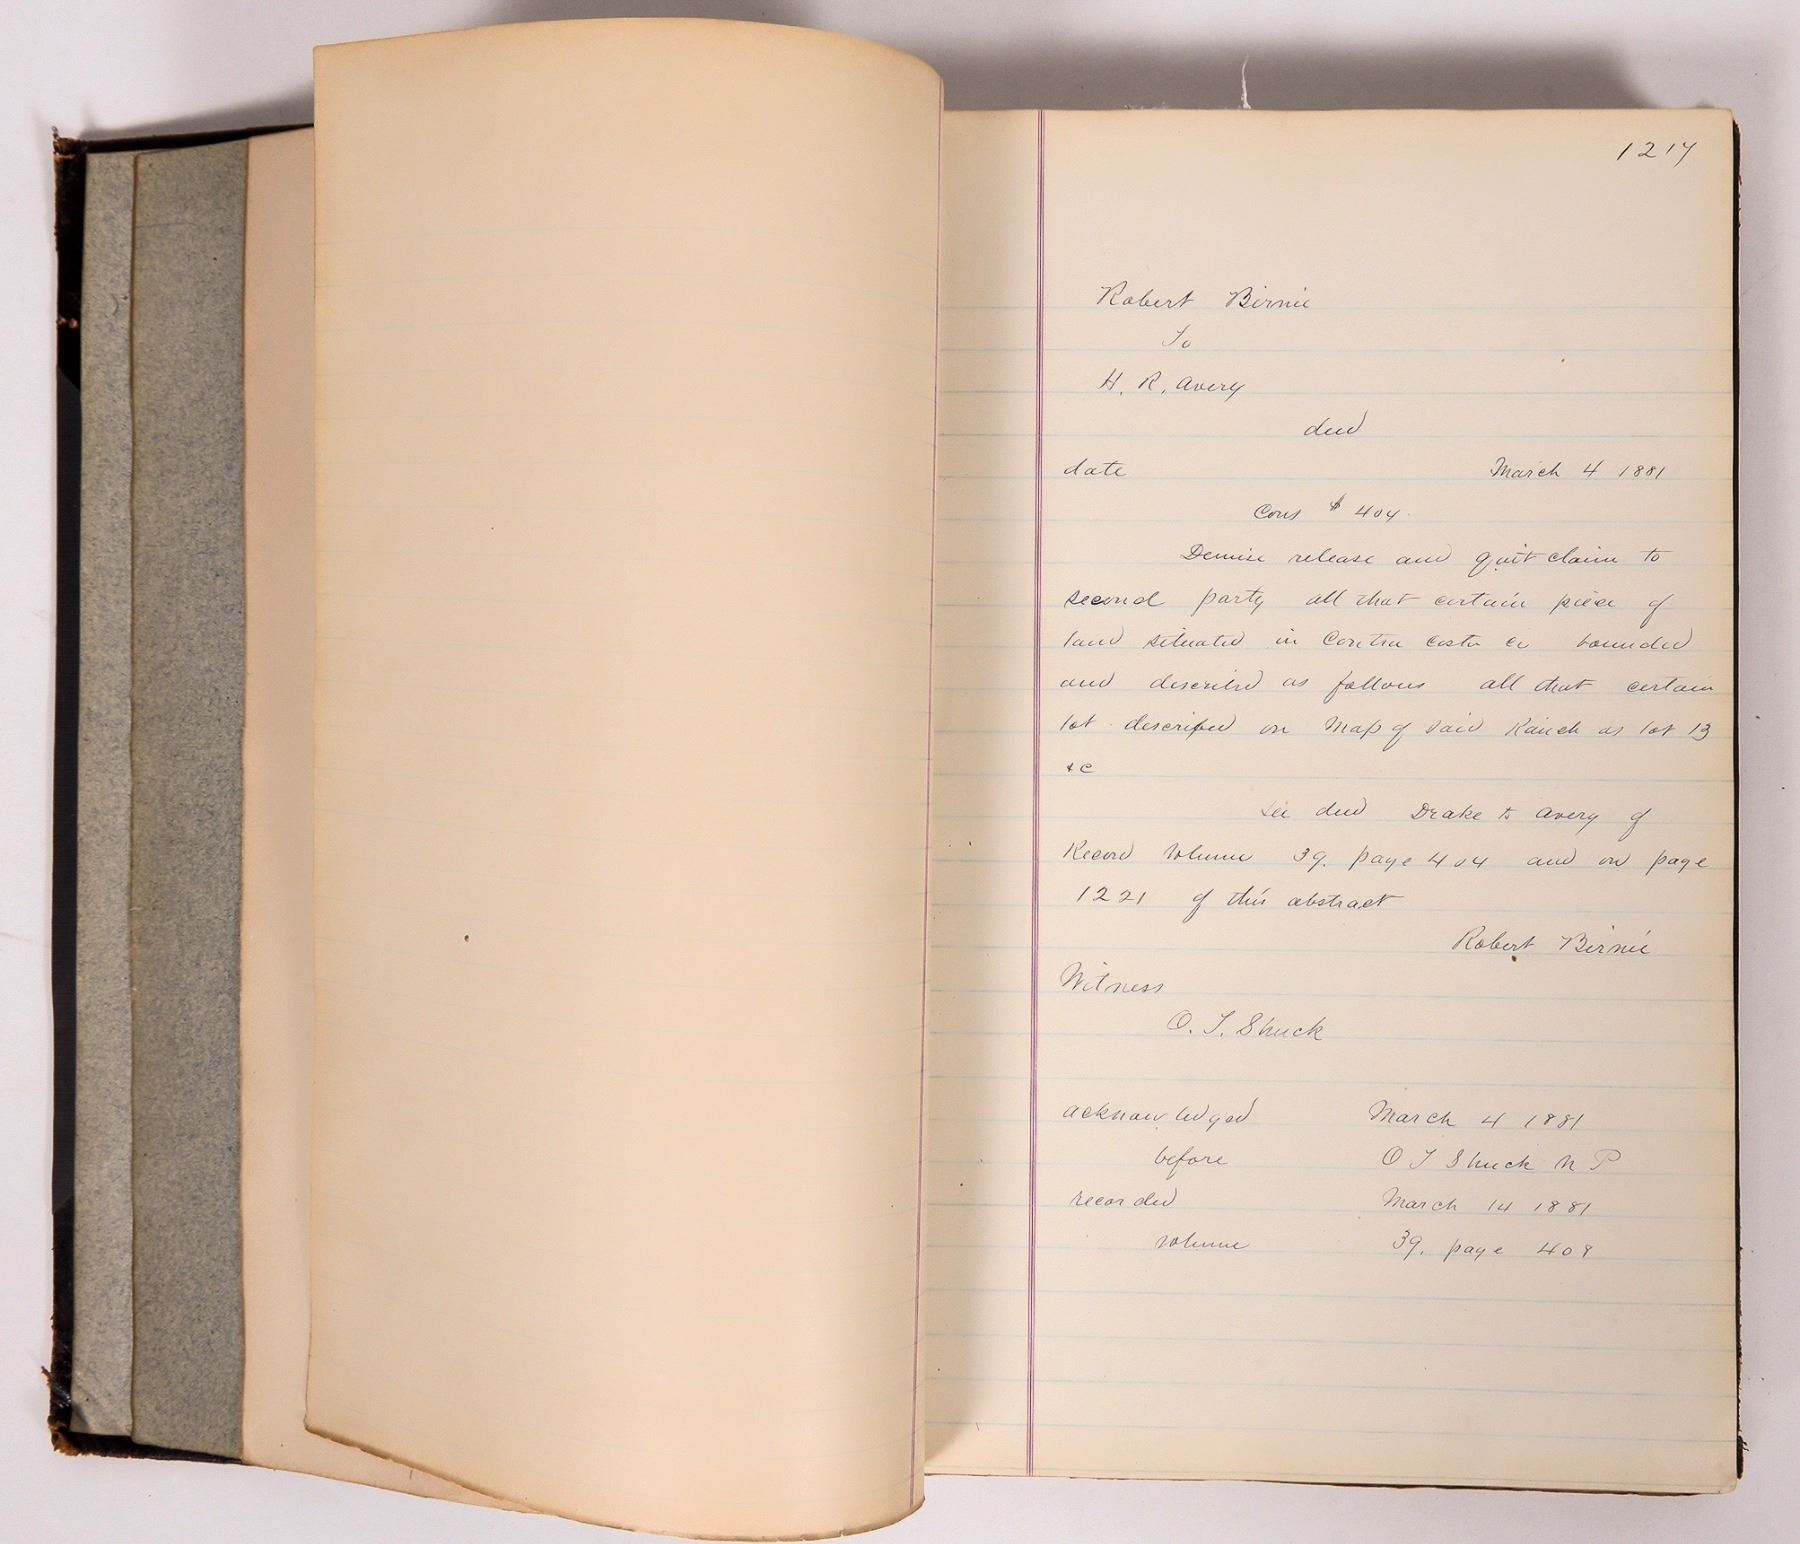 1217
Robert Birnie
To
H. R. Avery
deed
date March 4 1881
Cons $404.
Demise release and quit claim to
second party all that certain piece of
land situated in Contra Costa Co bounded
and described as follows all that certain
lot described on Map of said Ranch as lot 13
&c
see deed Drake to Avery of
Record volume 39. page 404 and on page
1221 of this abstract
Robert Birnie
Witness
O. T. Shuck
acknowledged March 4 1881
before O T Shuck N P
recorded March 14 1881
volume 39. page 408